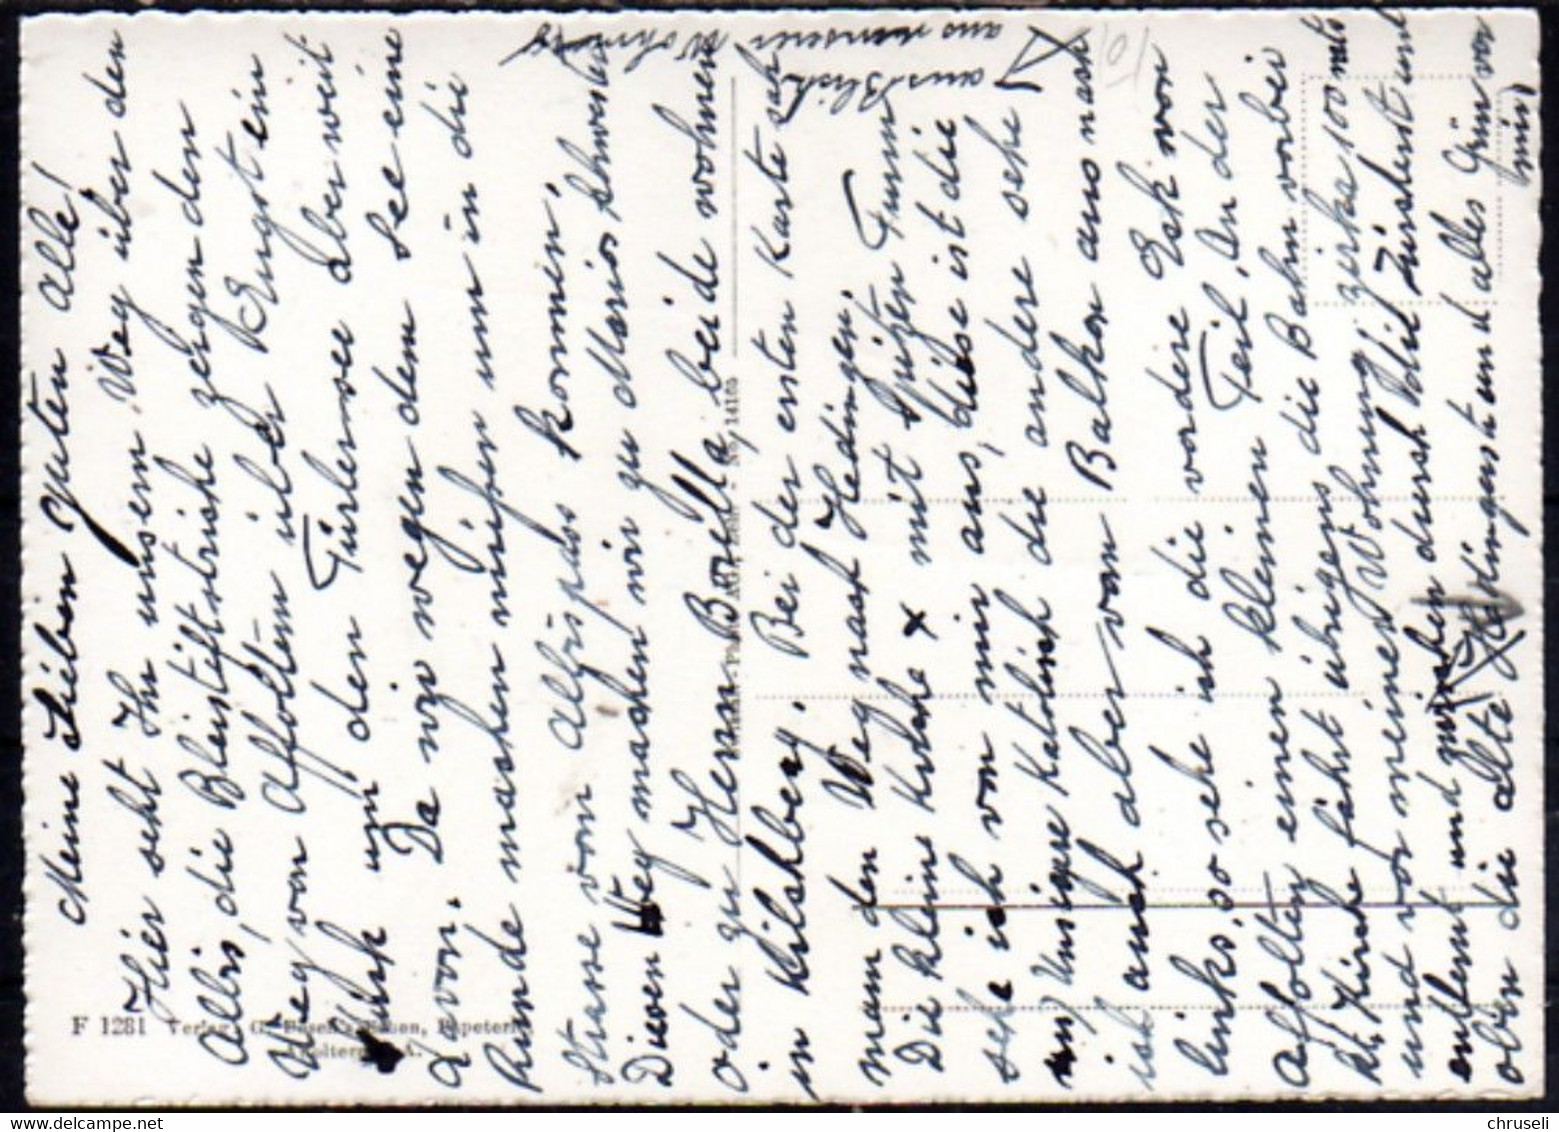 Meine Lieben guten alle!
Hier seht Ihr unsern Weg über den
Albis, die Bleistiftstriche zeigen den
Weg von Affoltern über
und den Türlersee aber weit
Da wir wegen dem See eine
Runde machen müssen um in die
Strasse vom Albispass zu kommen.
Diesen Weg machen wir zu Marios Schwester
oder zu Herrn Borella beide wohnen
in Kilchberg. Bei der ersten Karte sah
man den Weg nach Hedingen.
Die kleine Kirche x mit spitzen Turm
sehe ich von mir aus, diese ist die
unsere Katolisch die andere sehe
ich auch aber vom Balkon aus nach
links, so sehe ich die vordere Eck von
Affoltern einen kleinen Teil. An der
kl. Kirche fährt übrigens die Bahn vorbei
und vor meiner Wohnung zirka 100 mts
entfernt und zwischen durch viel Zürichert und
oben die alte Hedingerst und alles Grün vor
mir,
aus Blick
aus unserer Wohnung
101
F 1281 Verlag
No. 14105
chruseli